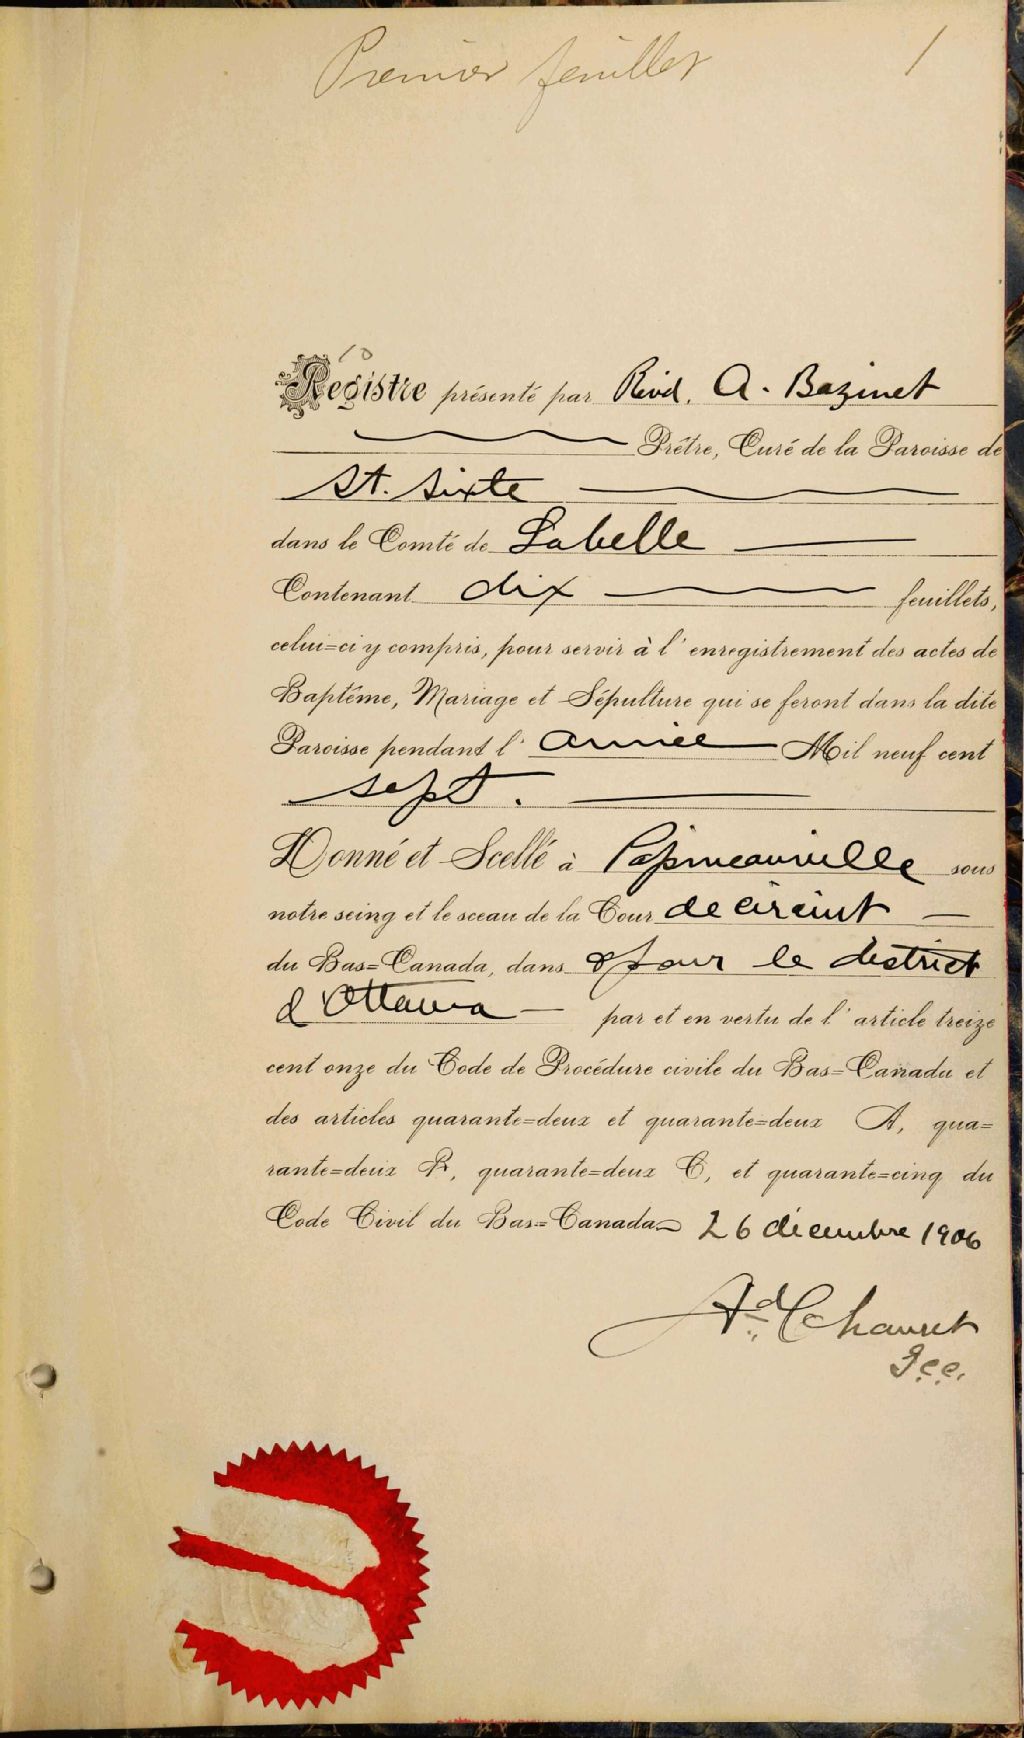 Premier feuillet 1
10
Registre présenté par Revd. A. Bazinet
Prêtre, Curé de la Paroisse de
St. Sixte
dans le Comté de Labelle
Contenant dix feuillets,
celui=ci y compris, pour servir à l'enregistrement des actes de
Baptême, Mariage et Sépulture qui se feront dans la dite
Paroisse pendant l'année Mil neuf cent
sept.
Donné et Scellé à Papineauville sous
notre seing et le sceau de la Cour de circuit
du Bas=Canada, dans & pour le district
d'Ottawa par et en vertu de l'article treize
cent onze du Code de Procédure civile du Bas=Canada et
des articles quarante=deux et quarante=deux A, qua=
rante=deux B, quarante=deux C, et quarante=cinq du
Code Civil du Bas=Canada 26 décembre 1906
Ad. Chauret